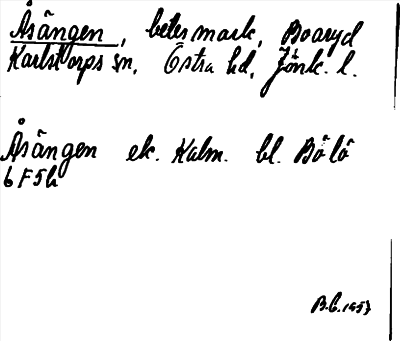 Åsängen, betesmark, Boaryd
Karlstorps sn, Östra hd, Jönk. l.
Åsängen ek. Kalm. bl. Bölö
6 F5h
B.E. 1953